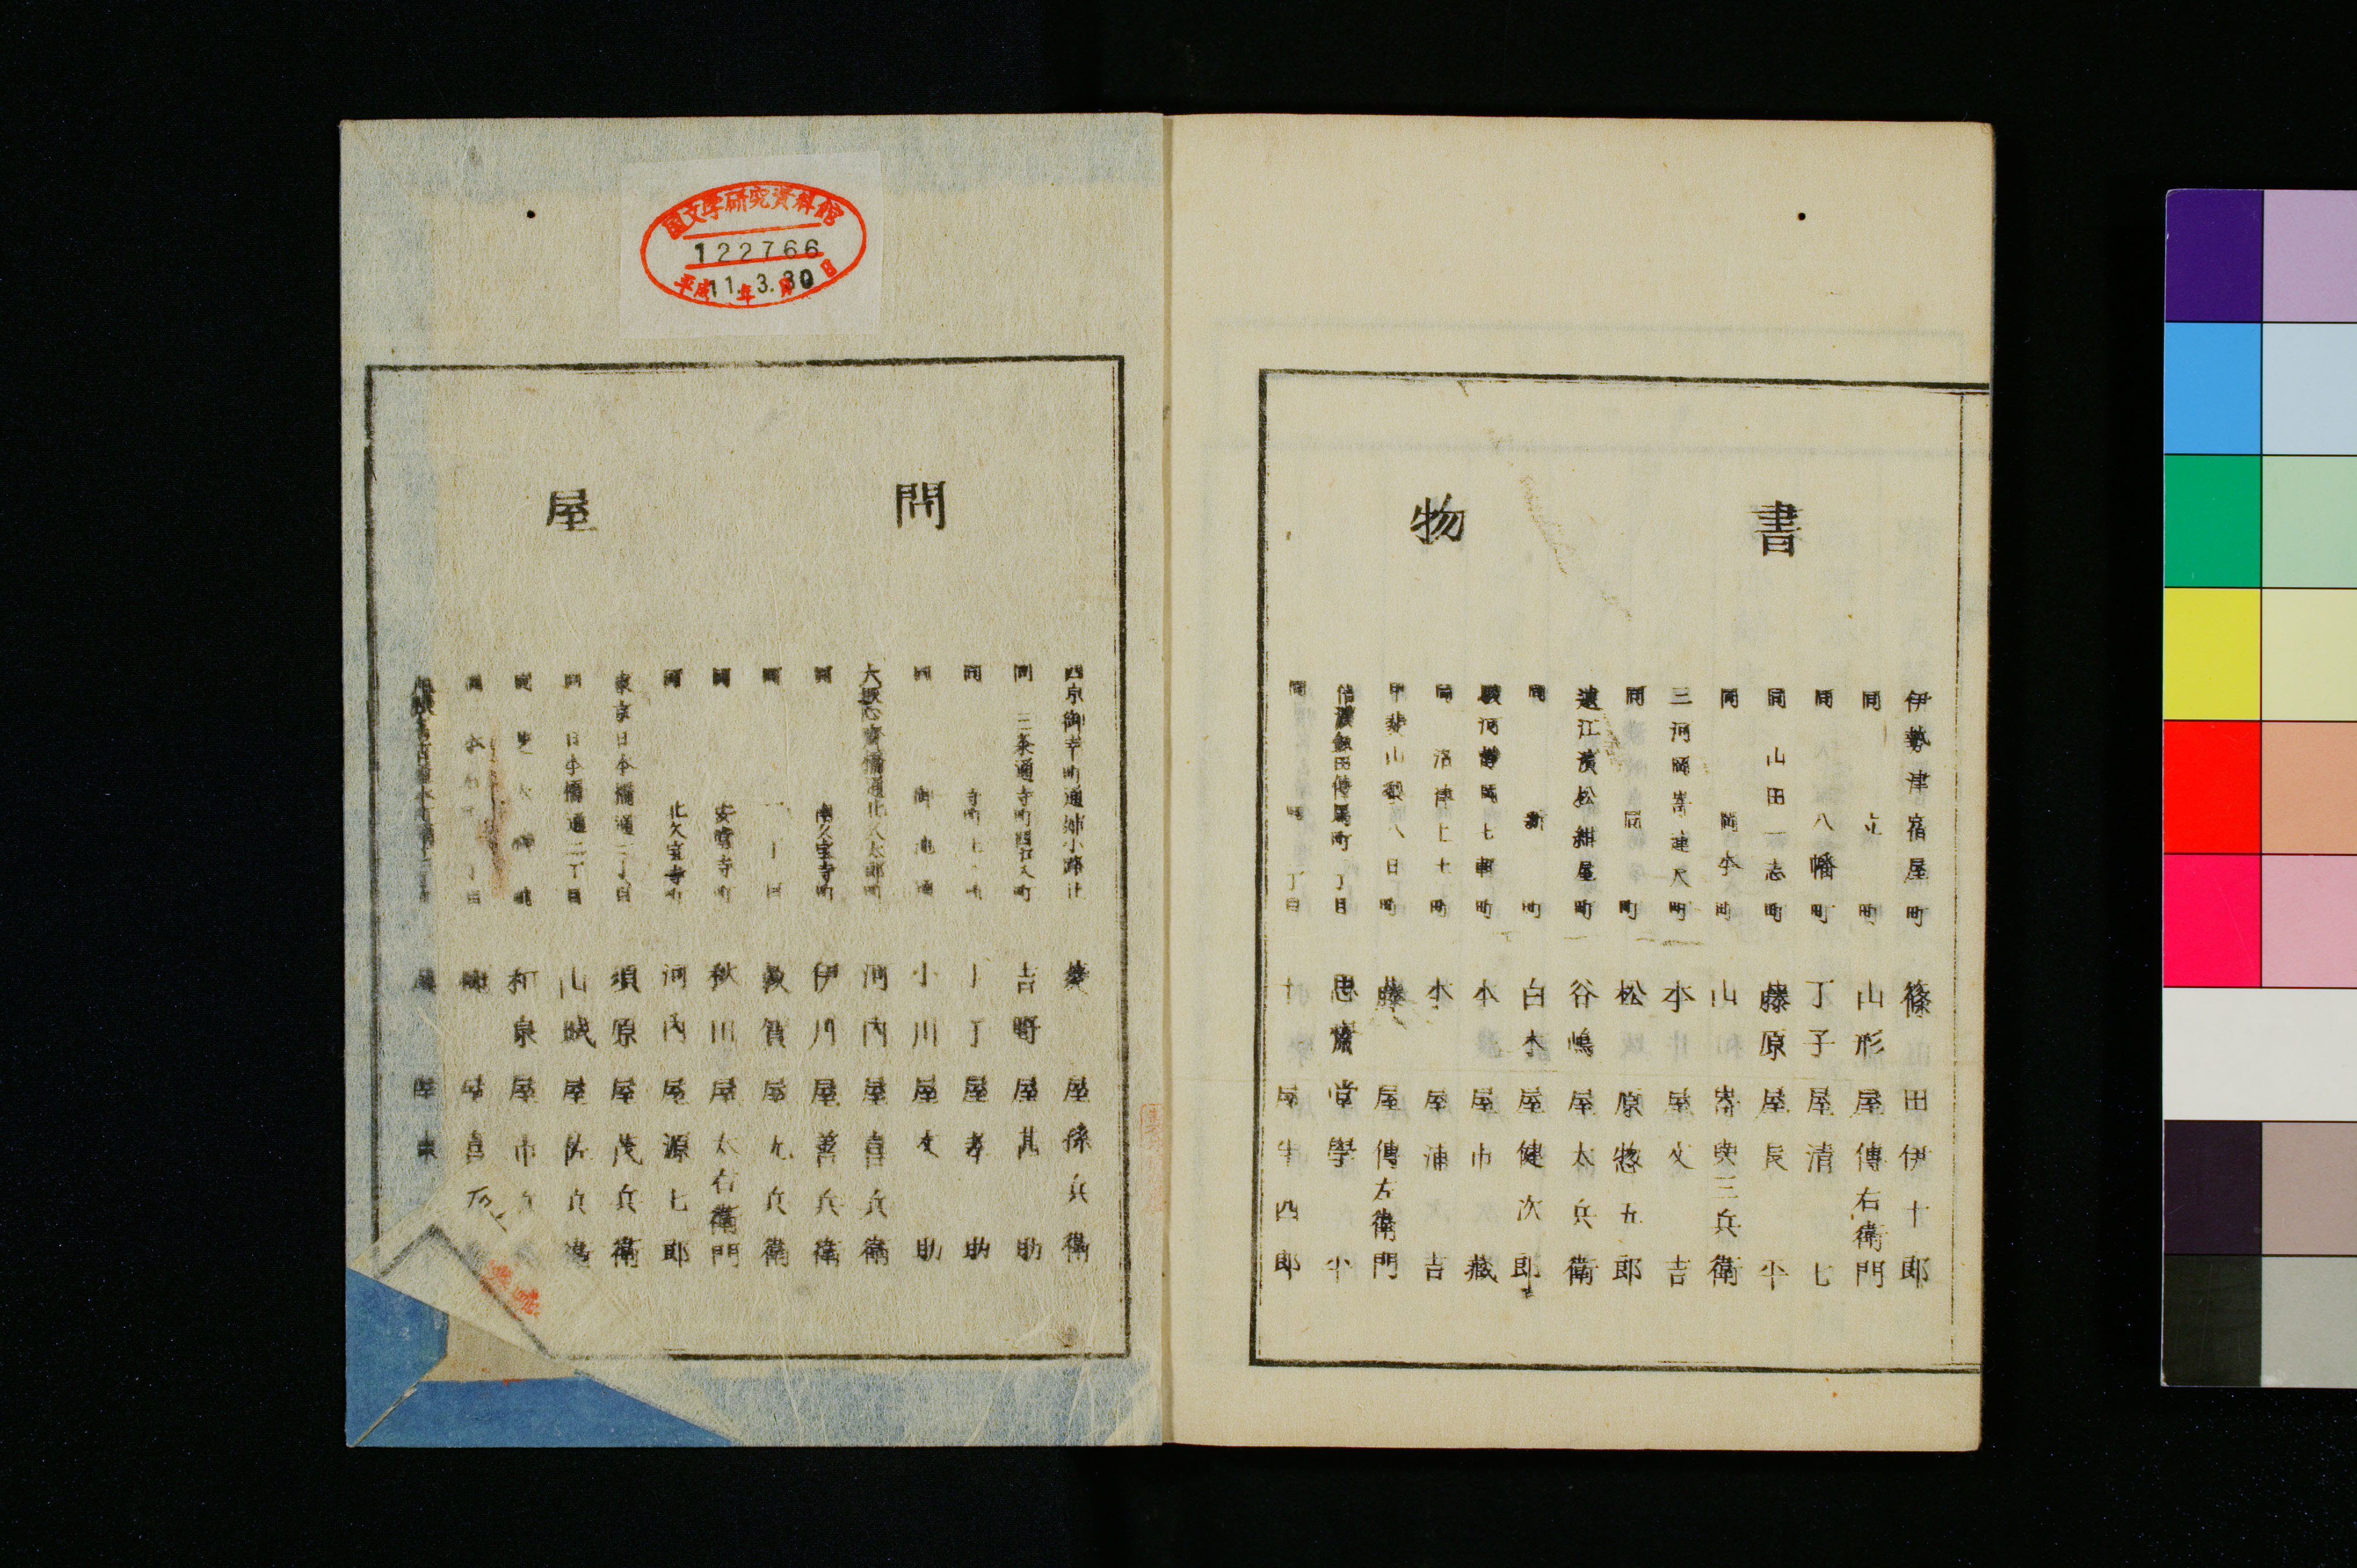 書物問屋
伊勢津宿屋町 篠田伊十郎
同 立町 山形屋傳右衛門
同 八幡町 丁子屋清七
同 山田一志町 藤原屋長平
同 岡本町 山嵜
三河岡嵜連尺町 本屋文吉
同 同町 松原惣五郎
遠江濱松紺屋町 谷嶋屋太兵衛
同 新町 白木屋健次郎
駿河静岡七軒町 本屋市藏
同 沼津上土町 本屋浦吉
甲斐山梨八日町 藤屋傳右衛門
信濃飯田傳馬町 丁目
同 丁目 十屋半四郎
西京御幸町通姉小路上 菱屋孫兵衛
同 三条通寺町西入町 吉野屋甚助
同 寺町 丁屋孝助
同 御池通 小川屋文助
大坂心齋橋通北久太郎町 河内屋喜兵衛
同 南久宝寺町 伊川屋善兵衛
同 丁目 敦賀屋九兵衛
同 安堂寺町 秋川屋太右衛門
同 北久宝寺町 河内屋源七郎
東京日本橋通一丁目 須原屋茂兵衛
同 日本橋通二丁目 山城屋佐兵衛
同 芝 和泉屋市
同 丁目 屋喜
国文学研究資料館
122766
平成11年3.月30日